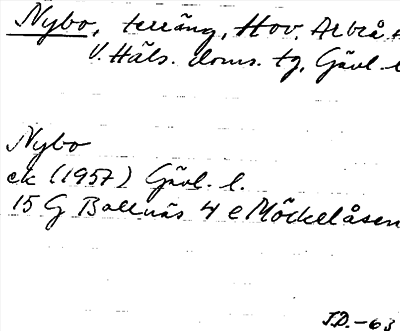 Nybo, terräng, Hov, Arbrå
V. Häls. doms. tg, Gävl. l
Nybo
ek (1957) Gävl. l.
15 G Bollnäs 4 e Möckelåsen
J.D.-63